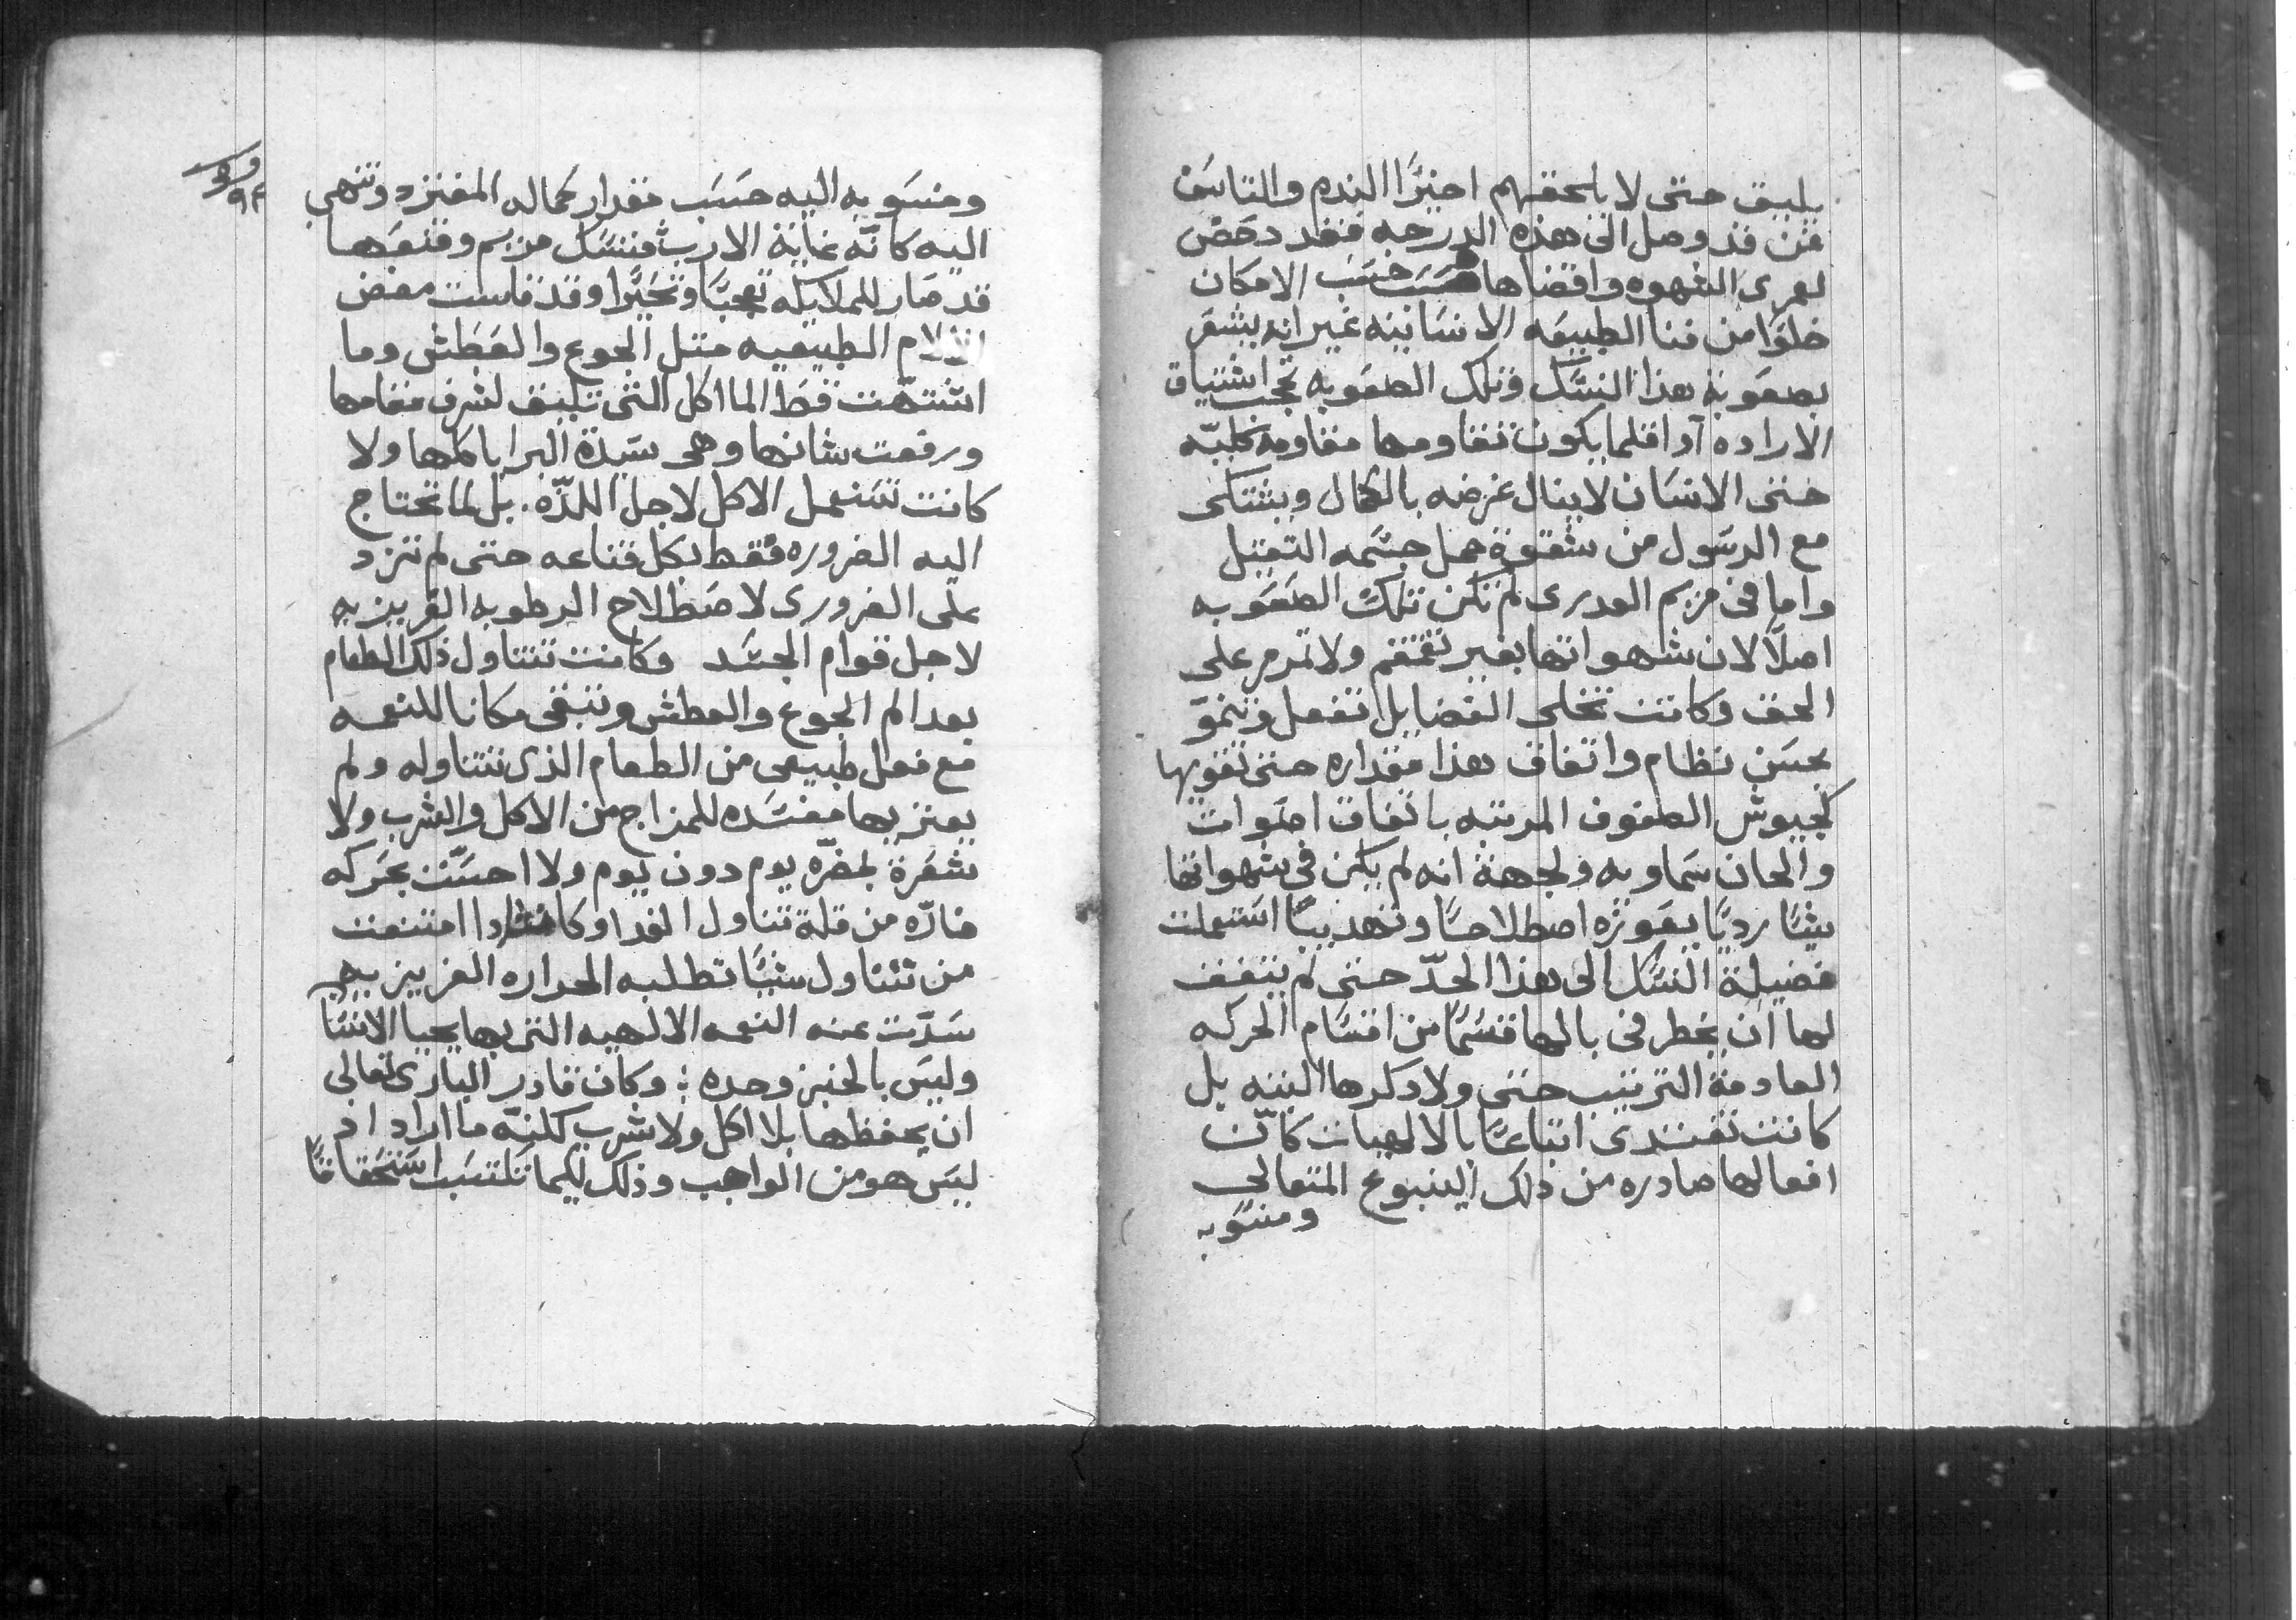 يليق حتى لا يلحقهم اخيرًا الندم والتاسف
فمن قد وصل الى هذه الدرجه فقد دحض
لعمرى الشهوه واقصاها حسب الامكان
خلوًا من فنا الطبيعه الانسانيه غير انه يشعر
بصعوبة هذا النسك وتلك الصعوبه تجب اشتياق
الاراده او اقلما يكون تقاومها مقاومة كليّه
حتى الانسان لا ينال غرضه بالكمال ويشتكى
مع الرسول من شقوة حمل جسمه الثقيل
واما فى مريم العدرى لم تكن تلك الصعوبه
اصلًا لان شهواتها بغير تقمقم ولا تمرمر على
الحق وكانت تخلى الفضايل تفعل وتنموّ
بحسن نظام واتفاق هذا مقداره حتى تقويها
كجيوش الصفوف المرتبه باتفاق اصوات
والحان سماويه ولجهة انه لم يكن فى شهواتها
شيًا رديًا يعوزه اصطلاحًا وتهديبًا استعملت
فضيلة النسك الى هذا الحدّ حتى لم يتفق
لها ان يخطر فى بالها قسمًا من اقسام الحركه
العادمة الترتيب حتى ولا دكرها البته بل
كانت تقتدى اتباعًا بالالهيات كانّ
افعالها صادره من ذلك الينبوع المتعالي
ومنسوبه
ومنسوبه اليه حسب مقدار كماله المفترد وتنتهي
اليه كانّه غاية الارب فنسك مريم وقنعها
قد صار للملايكه تعجبًا وتحيّرًا وقد قاست مضض
الالام الطبيعيه متل الجوع والعطش وما
اشتهت قط الماكل التى تليق لشرف مقامها
ورفعت شانها وهى سيدة البرايا كلها ولا
كانت تستعمل الاكل لاجل اللذّه. بل لما تحتاج
اليه الضروره فقط بكل قناعه حتى لم تزد
على الضرورى لاصطلاح الرطوبه الغريزيه
لاجل قوام الجسد وكانت تتناول ذلك الطعام
بعد الم الجوع والعطش وتبقى مكانا للنعمه
مع فعل طبيعى من الطعام الذى تتناوله ولم
يعتريها مفسده للمزاج من الاكل والشرب ولا
شعرة لمضرّه يوم دون يوم ولا احسّت بحركه
ضارّه من قلة تناول الغدا وكانت ادا امتنعت
من تناول شيًا تطلبه الحراره الغريزيه
سدّت عنه النعمه الالهيه التى بها يحيا الانسا
وليس بالخبز وحده ؛ وكان قادر البارى تعالى
ان يحفظها بلا اكل ولا شرب لكنّه ما اراد اد
ليس هو من الواجب وذلك ليكما تكتسب استحقاقًا